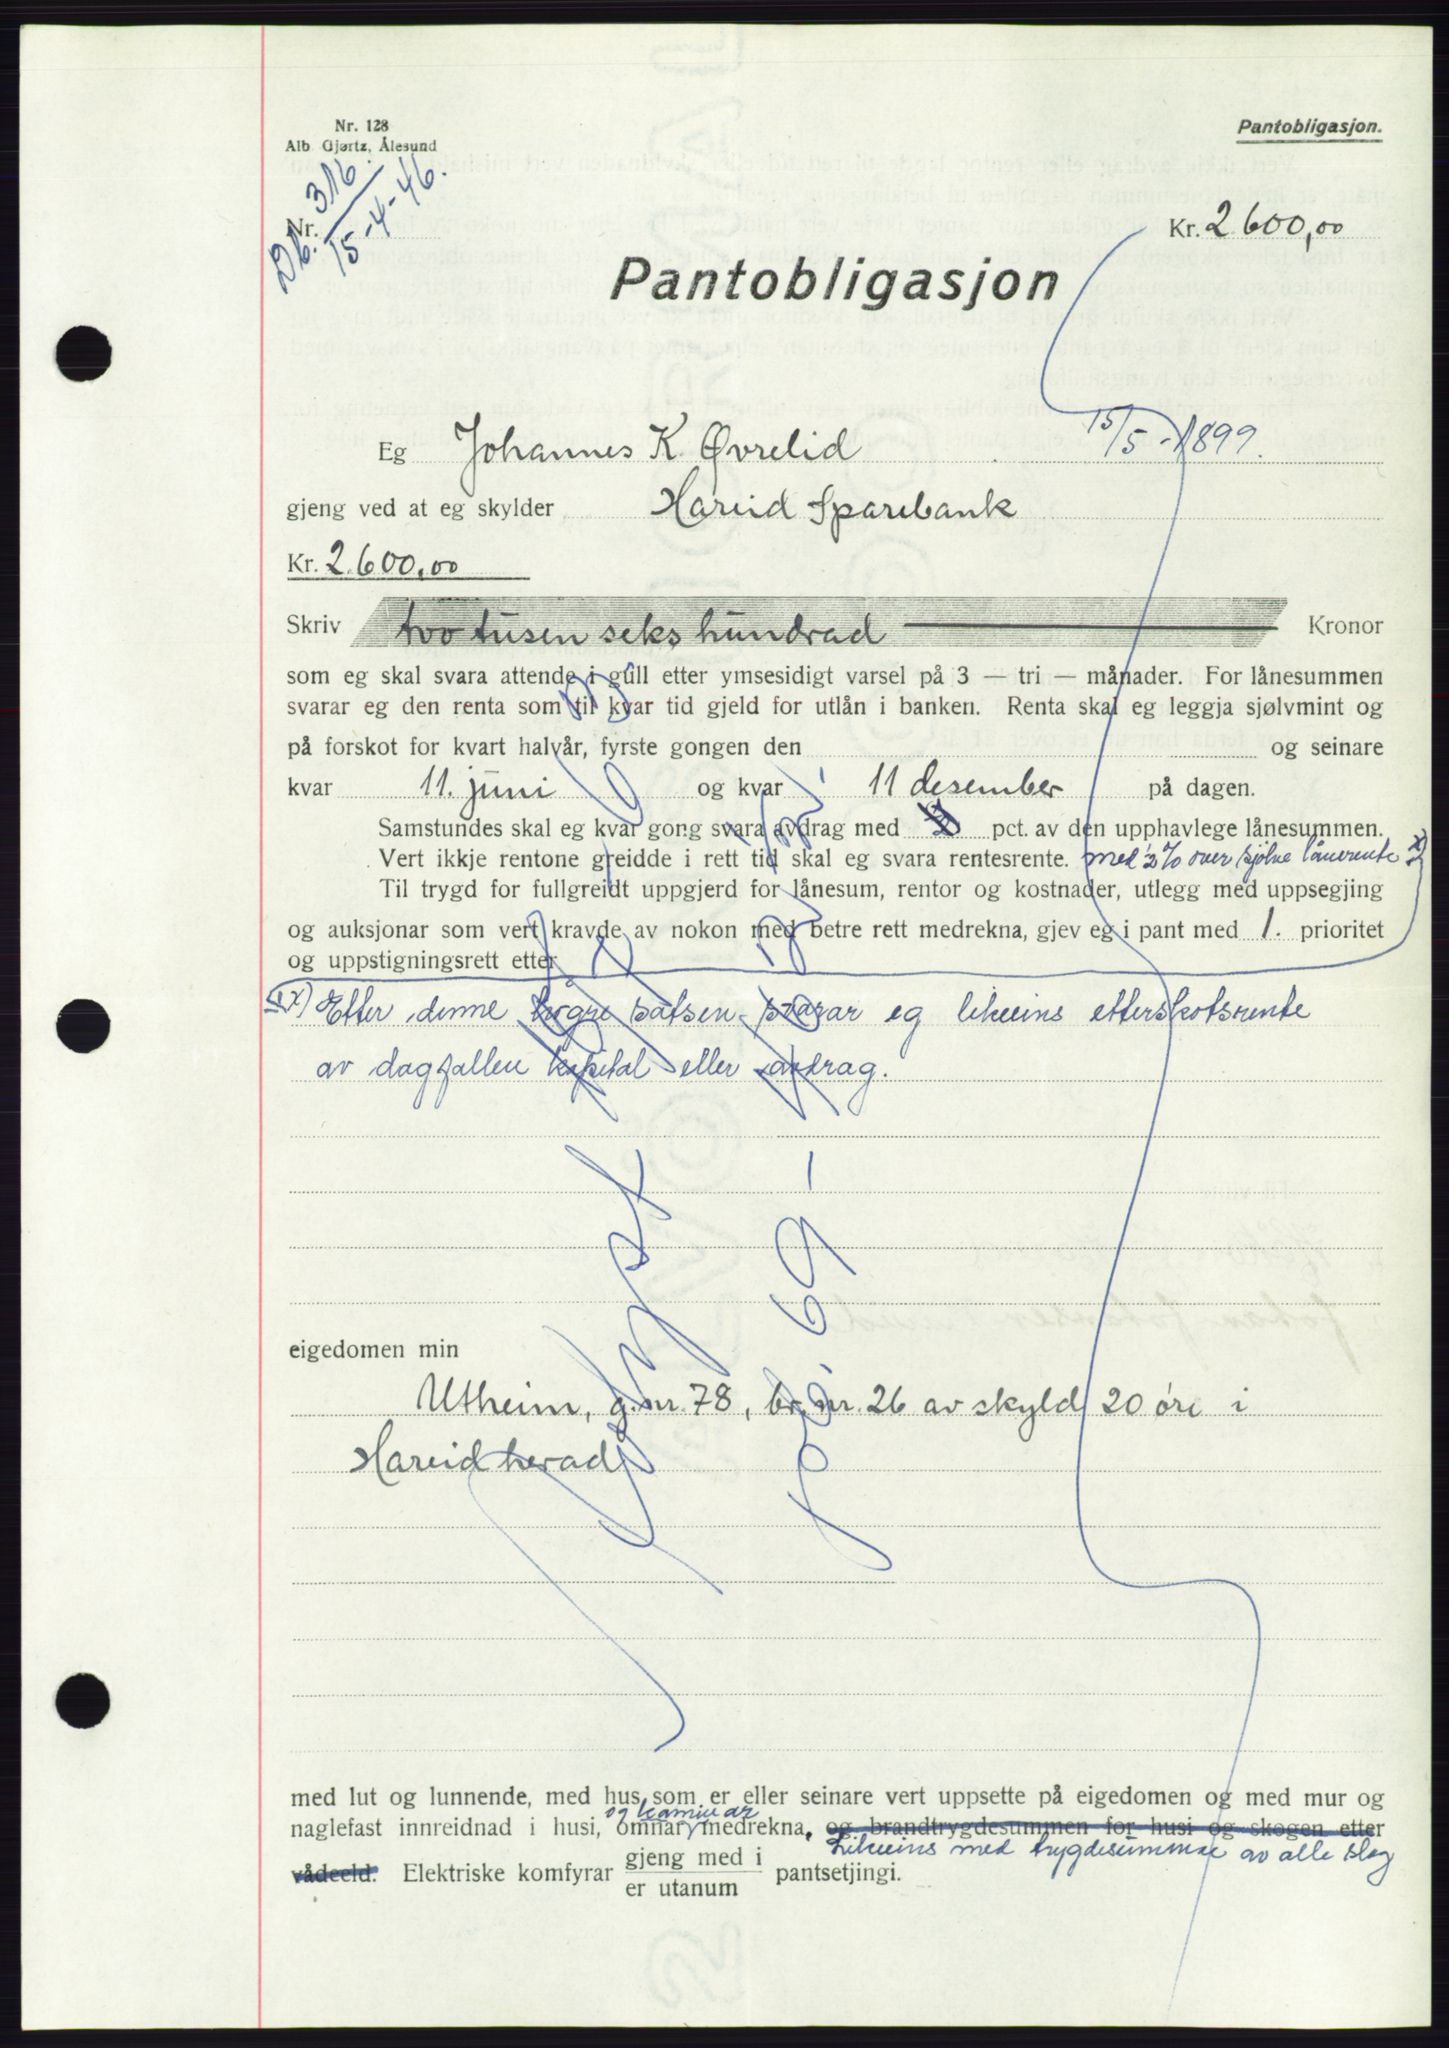 Nr. 128
Alb. Gjørtz, Ålesund
Pantobligasjon.
Nr.
Db. 316
15-4-46.
Kr. 2.600,00
Pantobligasjon
Eg Johannes K. Øvrelid 15/5-1899.
gjeng ved at eg skylder Hareid Sparebank
Kr. 2.600,00
Skriv tvo tusen seks hundrad Kronor
som eg skal svara attende i gull etter ymsesidigt varsel på 3 — tri — månader. For lånesummen
svarar eg den renta som til kvar tid gjeld for utlån i banken. Renta skal eg leggja sjølvmint og
på forskot for kvart halvår, fyrste gongen den og seinare
kvar 11. juni og kvar 11 desember på dagen.
Samstundes skal eg kvar gong svara avdrag med pct. av den upphavlege lånesummen.
Vert ikkje rentone greidde i rett tid skal eg svara rentesrente. med ½% over sjølve lånerente x)
Til trygd for fullgreidt uppgjerd for lånesum, rentor og kostnader, utlegg med uppsegjing
og auksjonar som vert kravde av nokon med betre rett medrekna, gjev eg i pant med 1. prioritet
og uppstigningsrett etter
x) Etter denne høgre satsen svarar eg likeeins etterskotsrente
av dagfallen kapital eller avdrag.
eigedomen min
Utheim, g.nr. 78, br.nr. 26 av skyld 20 øre i
Hareid herad
med lut og lunnende, med hus som er eller seinare vert uppsette på eigedomen og med mur og
og kaminar
naglefast innreidnad i husi, omnar medrekna, og brandtrygdesummen for husi og skogen etter
Likeeins med trygdesummar av alle slag
vådeeld. Elektriske komfyrar gjeng med i
er utanum pantsetjingi.